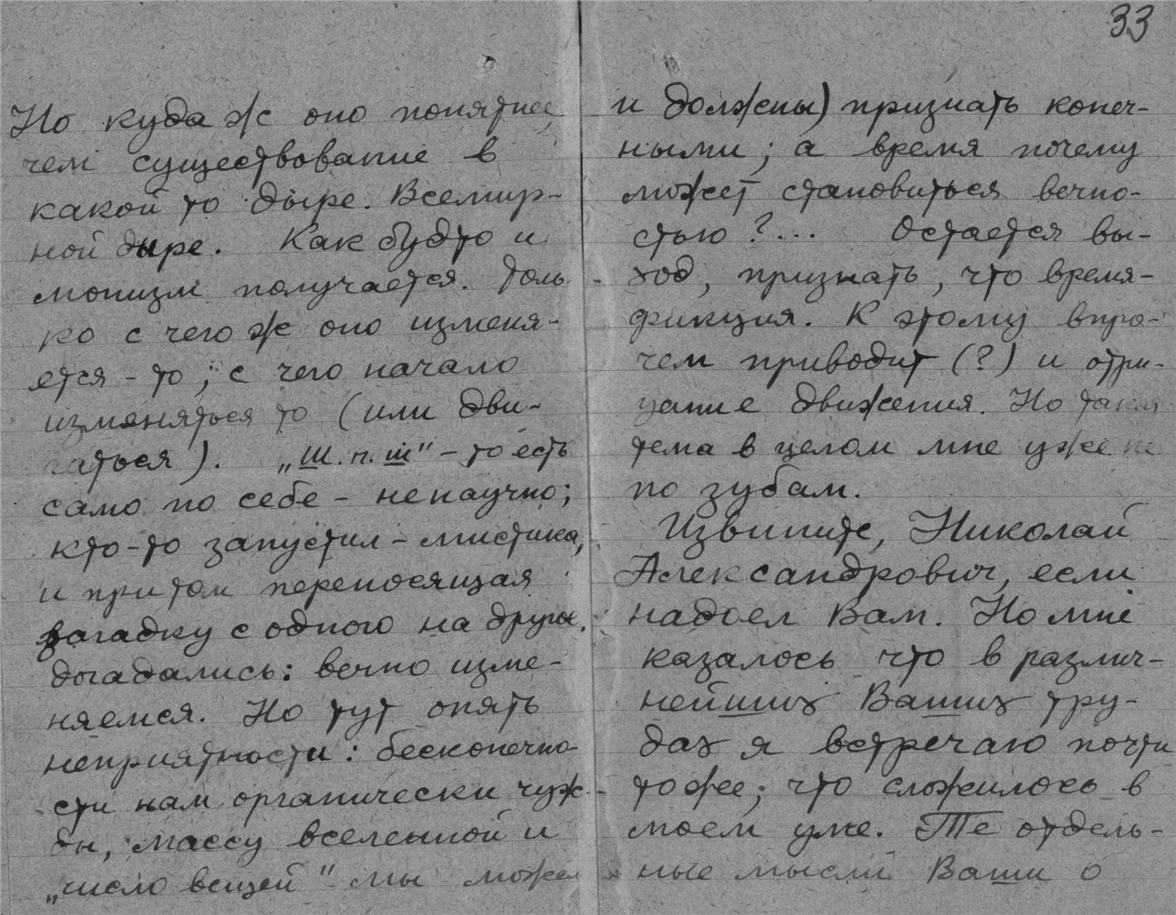 33
Но куда ж оно понятнее,
чем существование в
какой то дыре. Всемир-
ной дыре. Как будто и
монизм получается. Толь-
ко с чего ж оно изменя-
ется-то; с чего начало
изменяться то (или дви-
гаться). „Ш.п.ш" – то есть
само по себе – ненаучно;
кто-то запустил – мистика,
и притом переносящая
загадку с одного на другое.
догадались: вечно изме-
няемся. Но тут опять
неприятности: бесконечно-
сти нам органически чуж-
ды, массу вселенной и
„число вещей" мы можем
и должны) признать конеч-
ными; а время почему
может становиться вечно-
стью?... Остается вы-
ход, признать, что время-
фикция. К этому впро-
чем приводит (?) и отри-
цание движения. Но такая
тема в целом мне уже не
по зубам.
Извините, Николай
Александрович, если
надоел Вам. Но мне
казалось что в различ-
нейших Ваших тру-
дах я встречаю почти
тоже; что сложилось в
моем уме. Те отдель-
ные мысли Ваши о